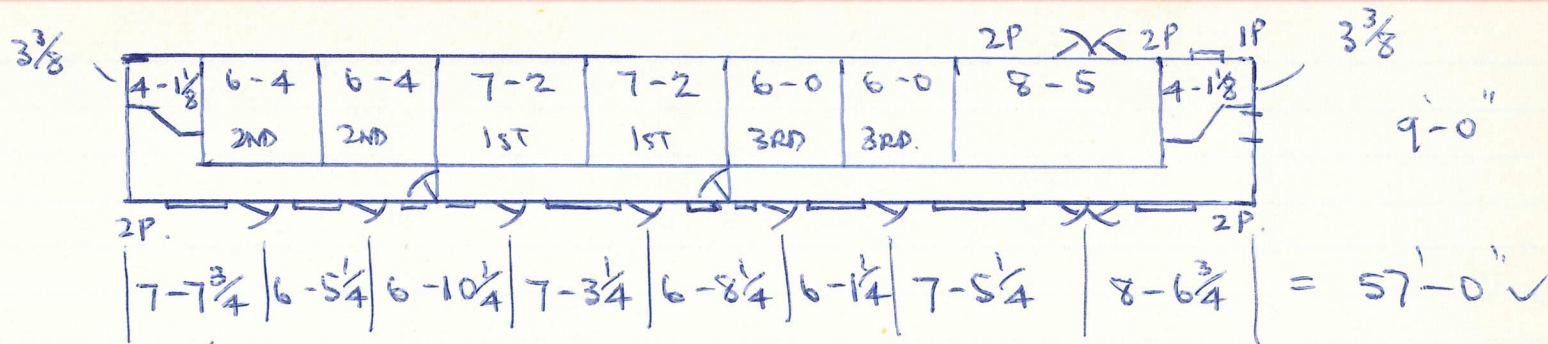 3 3/8 2P 2P 1P 3 3/8
4-1 1/8 6-4 6-4 7-2 7-2 6-0 6-0 8-5 4-1 1/8
2ND 2ND 1ST 1ST 3RD 3RD. 9'-0"
2P. 2P.
7-7 3/4 6-5 1/4 6-10 1/4 7-3 1/4 6-8 1/4 6-1 1/4 7-5 1/4 8-6 3/4 = 57'-0" ✓